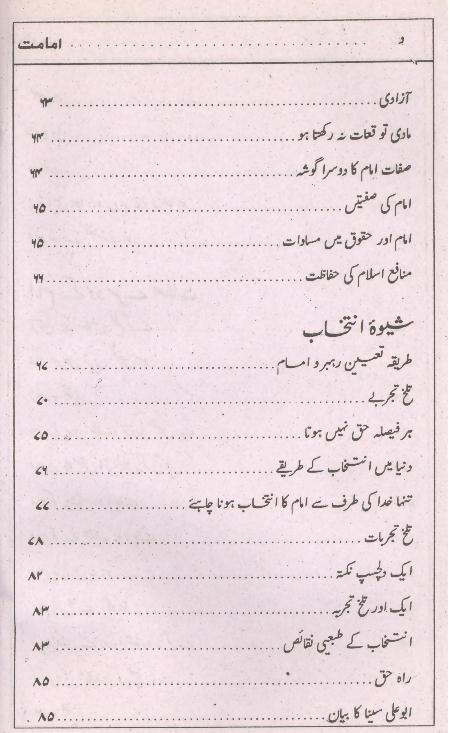 و ........ امامت
آزادی ........ ۶۳
مادی توقعات نہ رکھتا ہو ........ ۶۴
صفات امام کا دوسرا گوشہ ........ ۶۴
امام کی صفتیں ........ ۶۵
امام اور حقوق میں مساوات ........ ۶۵
منافع اسلام کی حفاظت ........ ۶۶
شیوۂ انتخاب
طریقہ تعیین رہبر و امام ........ ۶۷
تلخ تجربے ........ ۷۰
ہر فیصلہ حق نہیں ہوتا ........ ۷۵
دنیا میں انتخاب کے طریقے ........ ۷۶
تنہا خدا کی طرف سے امام کا انتخاب ہونا چاہئے ........ ۷۷
تلخ تجربات ........ ۷۸
ایک دلچسپ نکتہ ........ ۸۲
ایک اور تلخ تجربہ ........ ۸۳
انتخاب کے طبیعی نقائص ........ ۸۳
راہ حق ........ ۸۵
ابو علی سینا کا بیان ........ ۸۵